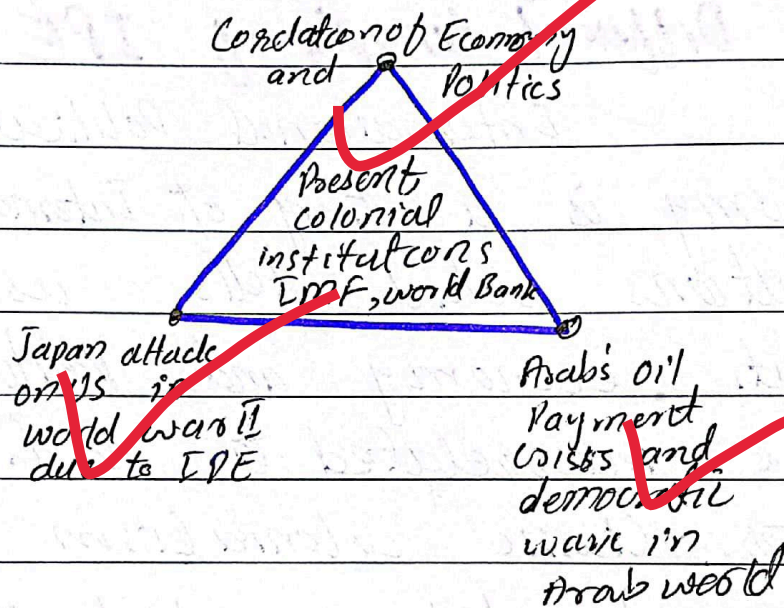 Corelation of Economy
and Politics
Present
colonial
institutions
IMF, world Bank
Japan attack
on US in
world war II
due to IPE
Arab's oil
Payment
crises and
democratic
wave in
Arab world